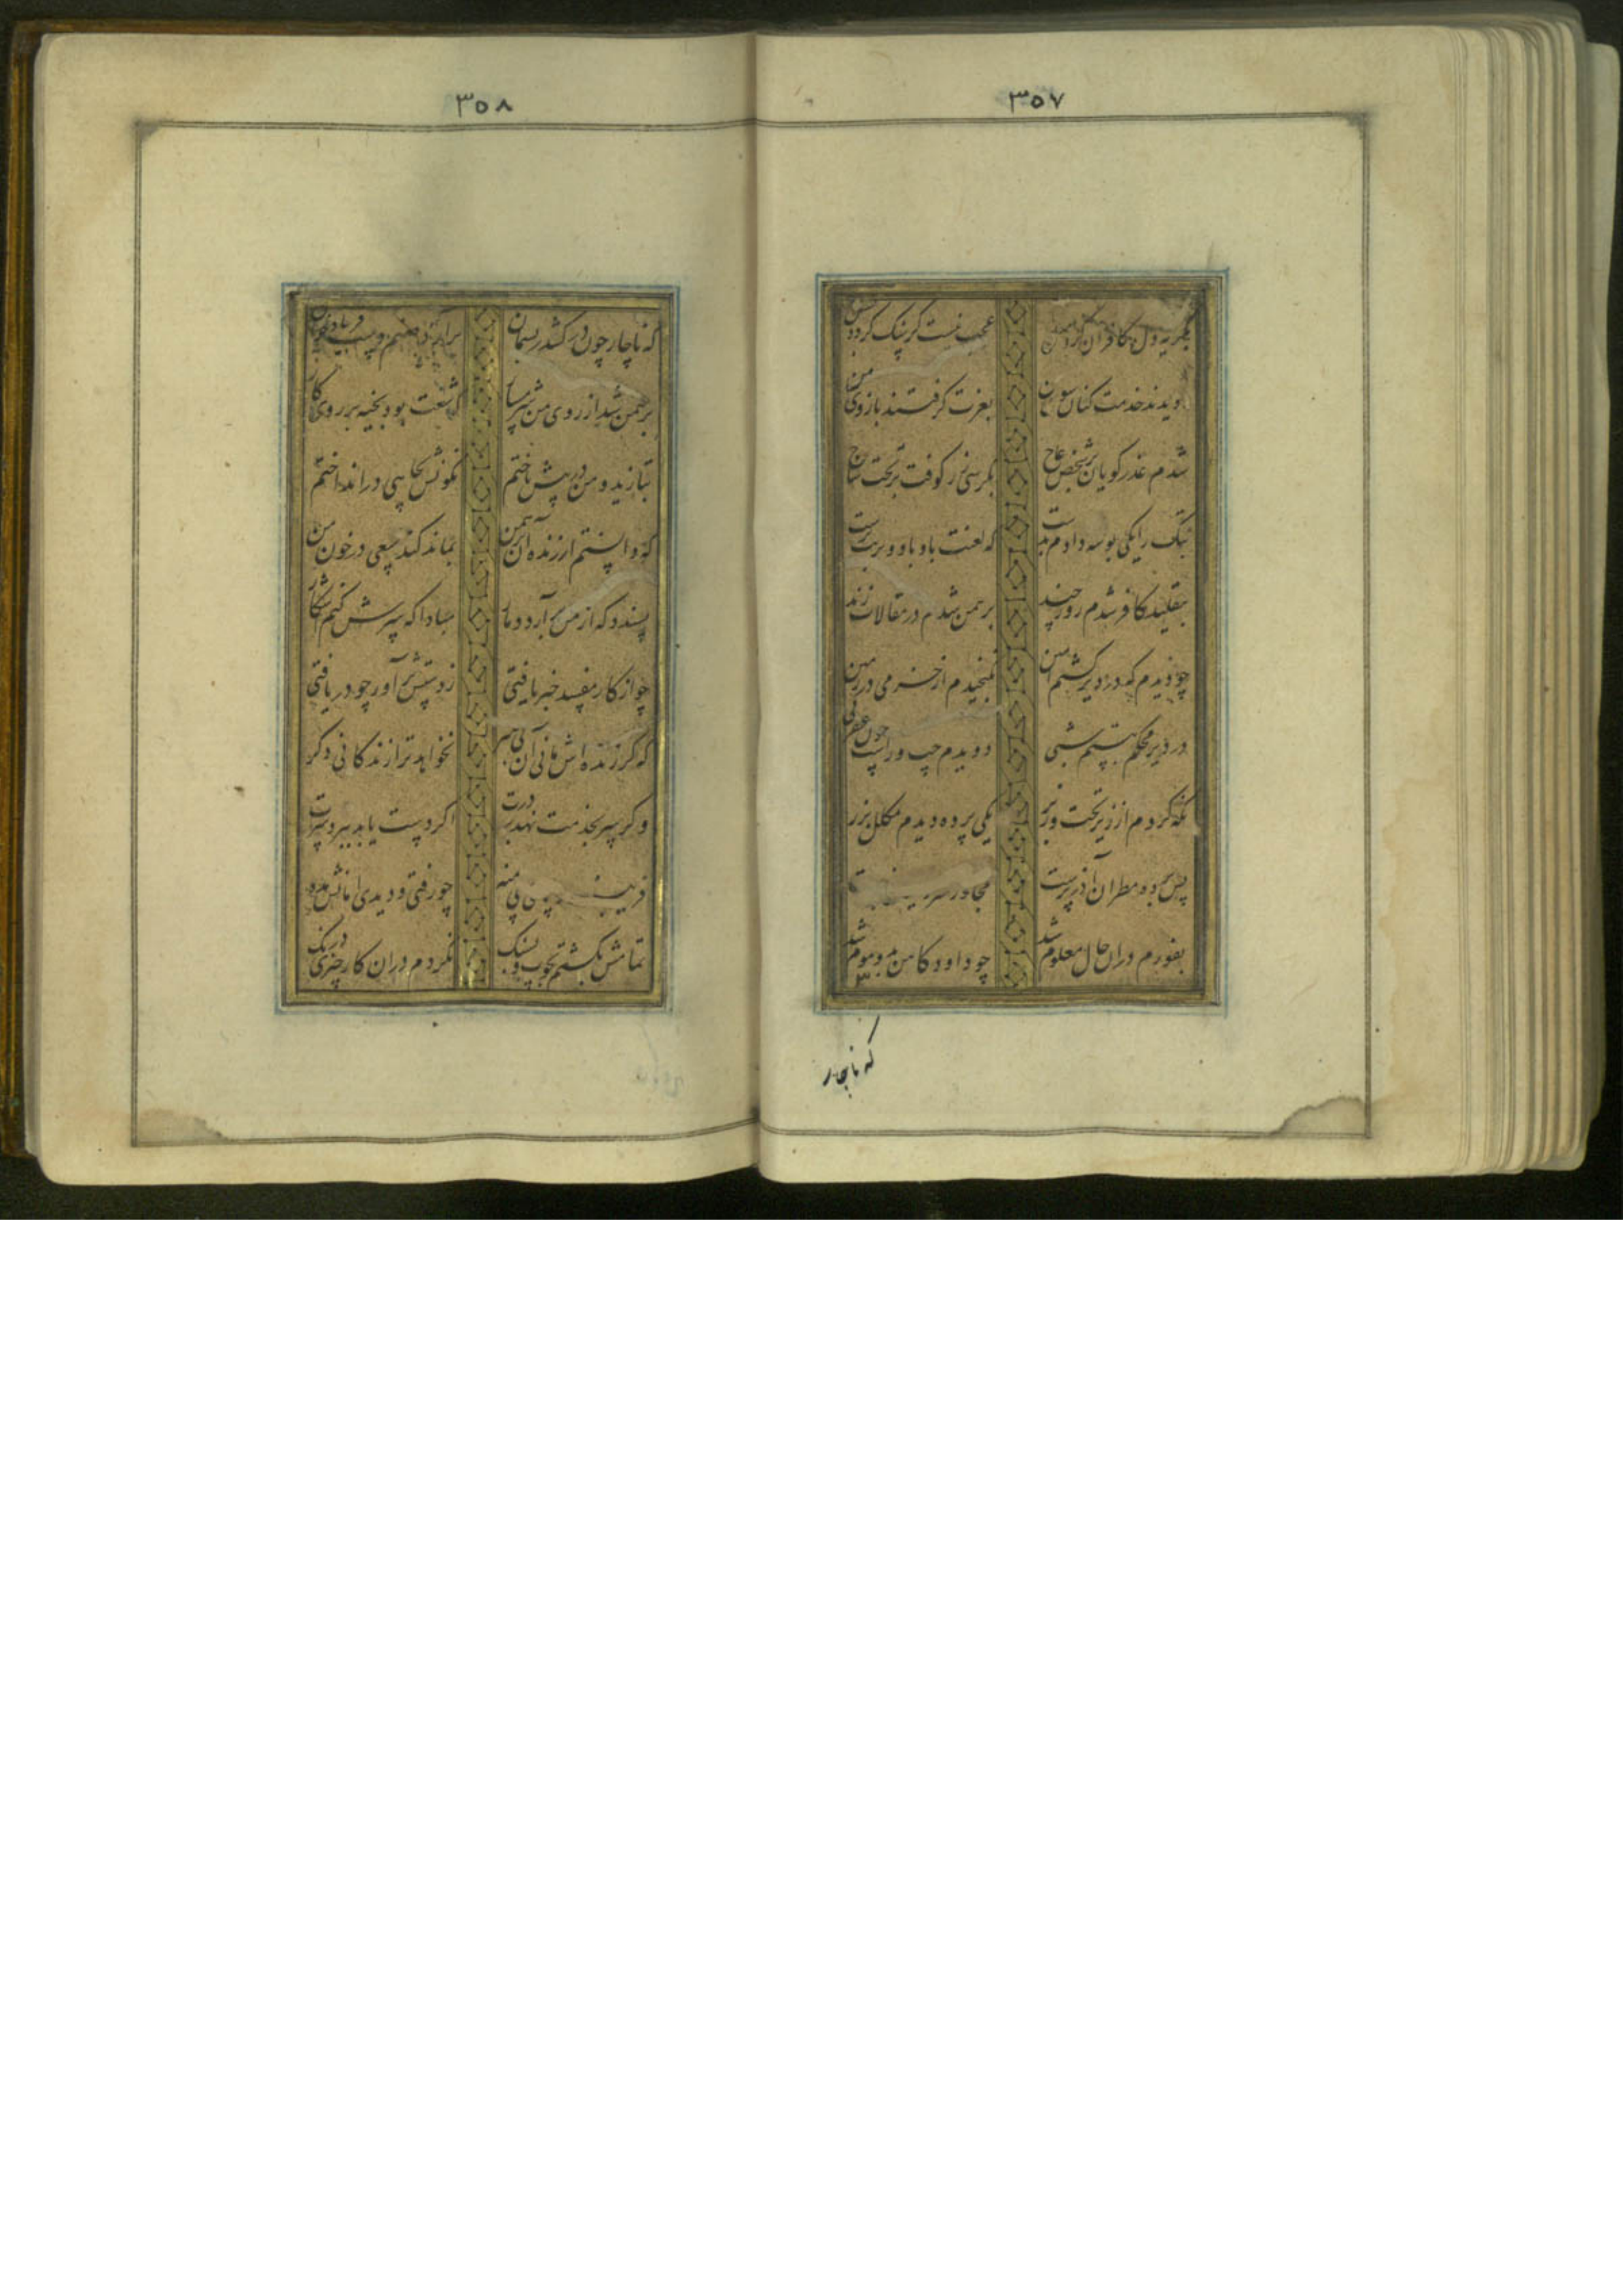 ۳۵۷
بگریه دل کافران کرد
عجب نیست گر سنگ گردد
دویدند خدمت کنان سوی من
بعزت گرفتند بازوی من
شدم عذر گویان بر شخص عاج
بکرسی زر کوفت بر تخت ساج
بتک را یکی بوسه دادم بدست
که لعنت باد باو و بر بت پرست
بتقلید کافر شدم روز چند
برهمن شدم در مقالات زند
چو دیدم که در دیر گشتم امین
نگنجیدم از خرمی در زمین
در دیر محکم ببستم شبی
دویدم چپ و راست چون عقربی
نگه کردم از زیر تخت و زبر
یکی پرده دیدم مکلل بزر
پس پرده مطران آذر پرست
مجاور سر
بفورم دران حال معلوم شد
چو داود کاهن برو موم شد
که ناچار
۳۵۸
که ناچار چون در کشد ریسمان
برآرد صنم دست فریادخوان
برهمن شد از روی من شرمسار
که شنعت بود بخیه بر روی کار
بتازید و من در پیش تاختم
نگونش بچاهی در انداختم
که دانستم ار زنده آن برهمن
بماند کند سعی در خون من
پسندد که از من برآرد دمار
مبادا که سرش کنم آشکار
چو از کار مفسد خبر یافتی
ز دستش برآور چو دریافتی
که گر زنده اش مانی آن بی هنر
نخواهد ترا زندگانی دگر
و گر سر بخدمت نهد بر درت
اگر دست یابد ببرد سرت
پی منه
چو رفتی و دیدی امانش مده
تمامش بکشتم بچوب و بسنگ
نکردم دران کار چیزی درنگ